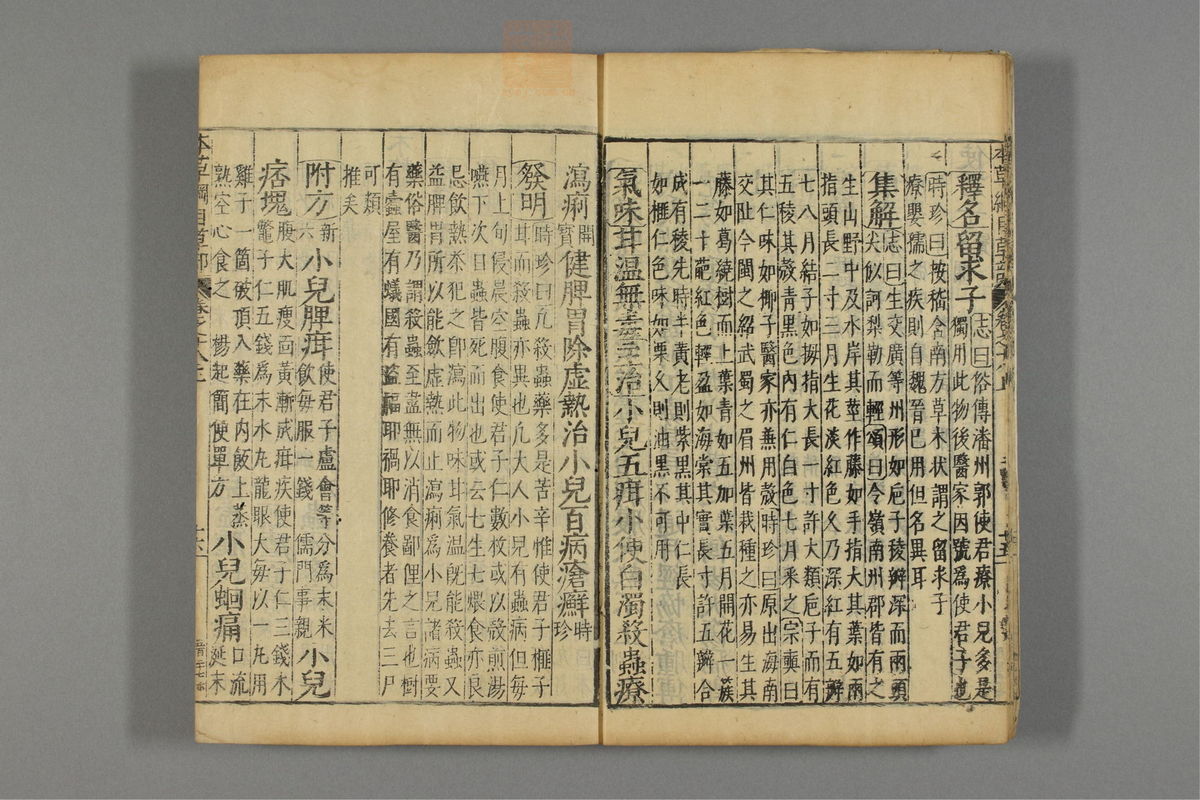 釋名留求子志曰俗傳潘州郭使君療小兒多是
獨用此物後醫家因號爲使君子也
時珍曰按嵇含南方草木狀謂之留求子
療嬰孺之疾則自魏晉已用但名異耳
集解志曰生交廣等州形如巵子稜瓣深而兩頭
尖似訶梨勒而輕頌曰今嶺南州郡皆有之
生山野中及水岸其莖作藤如手指大其葉如兩
指頭長二寸三月生花淡紅色久乃深紅有五瓣
七八月結子如拇指大長一寸許大類巵子而有
五稜其殼青黑色內有仁白色七月采之宗奭曰
其仁味如椰子醫家亦兼用殼時珍曰原出海南
交趾今閩之紹武蜀之眉州皆栽種之亦易生其
藤如葛繞樹而上葉青如五加葉五月開花一簇
一二十葩紅色輕盈如海棠其實長寸許五瓣合
成有稜先時半黃老則紫黑其中仁長
如榧仁色味如栗久則油黑不可用
氣味甘溫無毒主治小兒五疳小便白濁殺蟲療
瀉痢開寶健脾胃除虛熱治小兒百病瘡癬時珍
發明時珍曰凡殺蟲藥多是苦辛惟使君子榧子
甘而殺蟲亦異也凡大人小兒有蟲病但每
月上旬侵晨空腹食使君子仁數枚或以殼煎湯
嚥下次日蟲皆死而出也或云七生七煨食亦良
忌飲熱茶犯之卽瀉此物味甘氣溫旣能殺蟲又
益脾胃所以能斂虛熱而止瀉痢爲小兒諸病要
藥俗醫乃謂殺蟲至盡無以消食鄙俚之言也樹
有蠹屋有蟻國有盜福耶禍耶修養者先去三尸
可類
推矣
附方新六小兒脾疳使君子盧會等分爲末米飲每服一錢儒門事親小兒
痞塊腹大肌瘦面黃漸成疳疾使君子仁三錢木
鼈子仁五錢爲末水丸龍眼大每以一丸用
雞子一箇破頂入藥在內飯上蒸
熟空心食之楊起簡便單方小兒蛔痛口流涎末